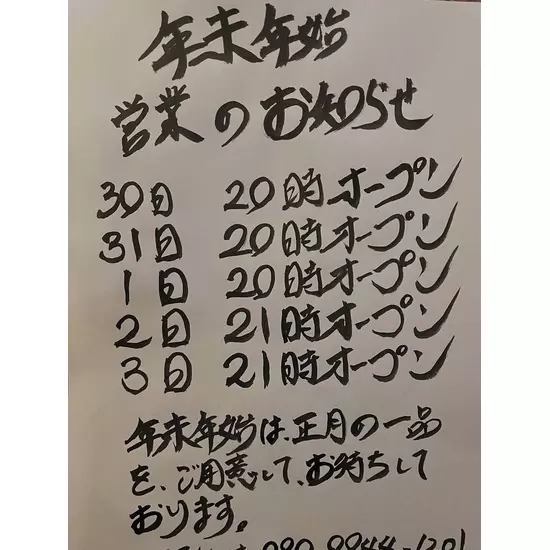 年末年始
営業のお知らせ
30日 20時オープン
31日 20時オープン
1日 20時オープン
2日 21時オープン
3日 21時オープン
年末年始は、正月の一品
を、ご用意して、お待ちして
おります。